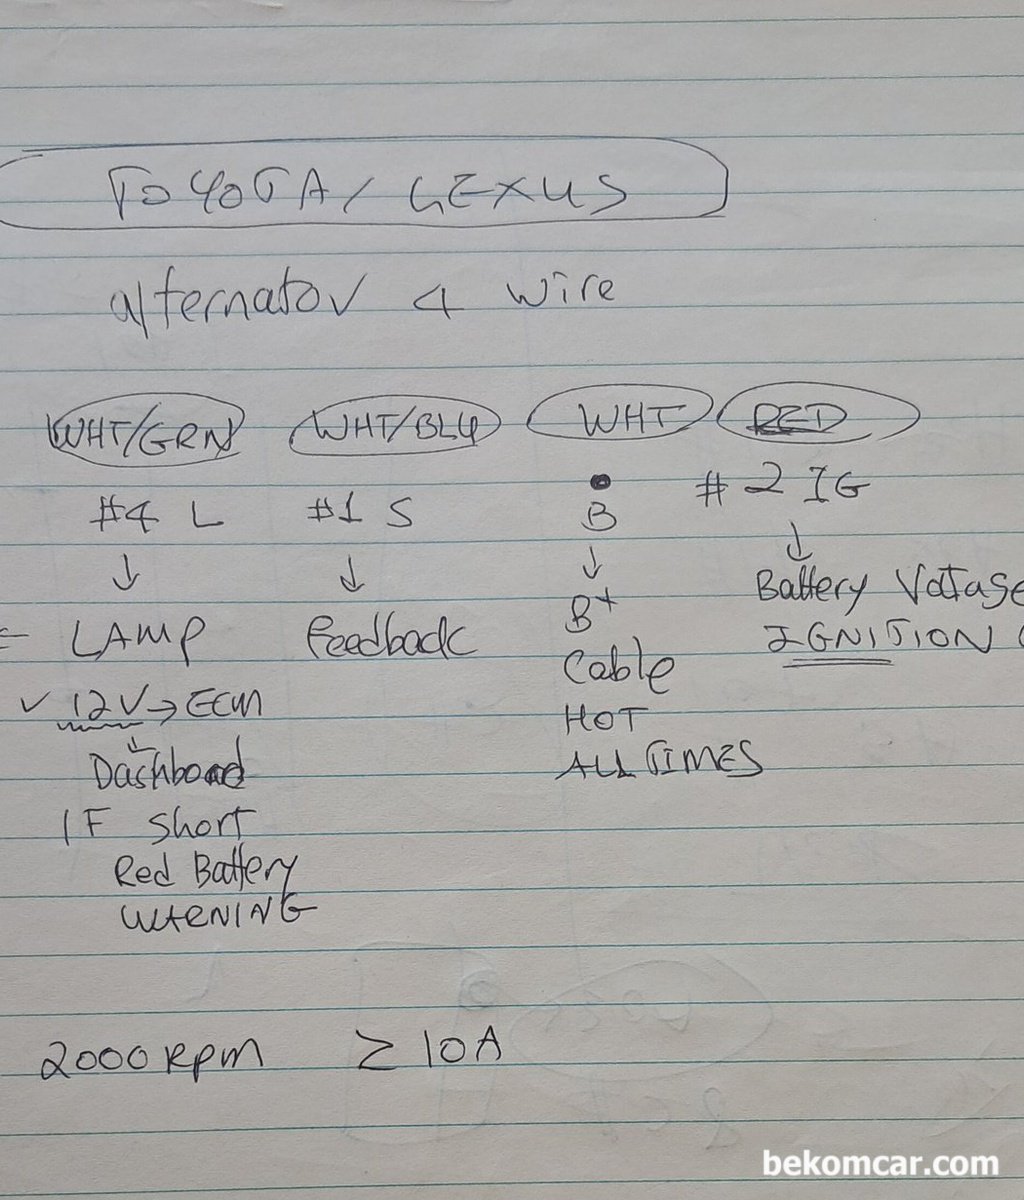 TOYOTA / LEXUS
alternator 4 wire
WHT/GRN WHT/BLU WHT RED
#4 L #1 S B #2 IG
LAMP Feedback B+ Battery Voltage
Cable IGNITION
12V → ECM HOT
Dashboard ALL TIMES
IF Short
Red Battery
WARNING
2000 RPM ≥ 10A
bekomcar.com